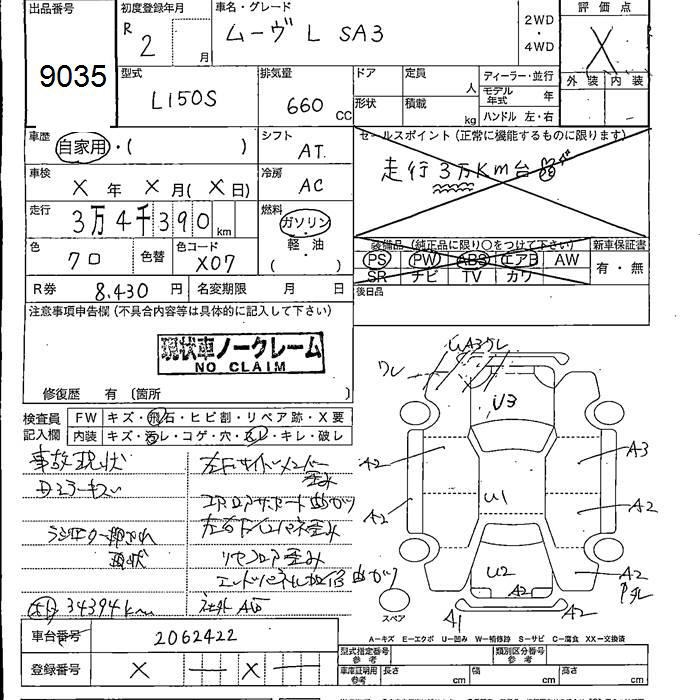 出品番号
初度登録年月
車名・グレード
評価点
9035
R 2 月
ムーヴ L SA3
2WD
4WD
X
型式
L150S
排気量
660 CC
ドア
定員
人
ディーラー・並行
モデル年式
年
ハンドル 左・右
形状
積載
kg
外装
内装
車歴
自家用・( )
シフト
AT
セールスポイント(正常に機能するものに限ります)
走行3万Km台
車検
X 年 X 月( X 日)
冷房
AC
走行
3万4千390 km
燃料
ガソリン・軽・油
( )
色
クロ
色替
色コード
X07
装備品(純正品に限り○をつけて下さい)
新車保証書
PS PW ABS エアB AW
SR ナビ TV カワ
有・無
R券
8.430 円
名変期限
月
日
後日品
注意事項申告欄(不具合内容等は具体的に記入して下さい)
現状車ノークレーム
NO CLAIM
修復歴 有 〔箇所 〕
検査員記入欄
FW キズ・飛石・ヒビ割・リペア跡・X要
内装 キズ・汚レ・コゲ・穴・スレ・キレ・破レ
事故現状
左Fサイドメンバー
歪み
Dミラーキズ
ラジエター押され
現状
リヤフロア歪み
34394km
社外AW
UA3ワレ
ワレ
U3
A2
A3
A2
U1
A2
U2
A2
A2
A1
A2
スペア
A－キズ E－エクボ U－凹み W－補修跡 S－サビ C－腐食 XX－交換済
車台番号
2062422
型式指定番号
参考
類別区分番号
参考
登録番号
X
X
車庫証明用
参考
長さ
cm
幅
cm
高さ
cm